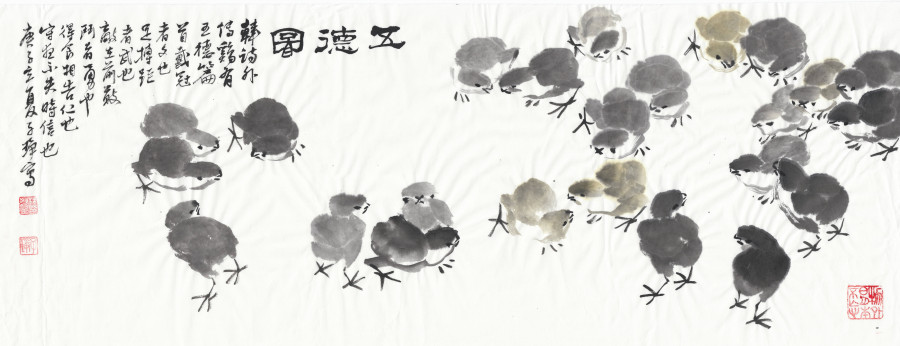 五德圖
韓詩外
傳鷄有
五德篇
首戴冠
者文也
足搏距
者武也
敵在前敢
鬥者勇也
得食相告仁也
守夜不失時信也
庚子之夏子寫